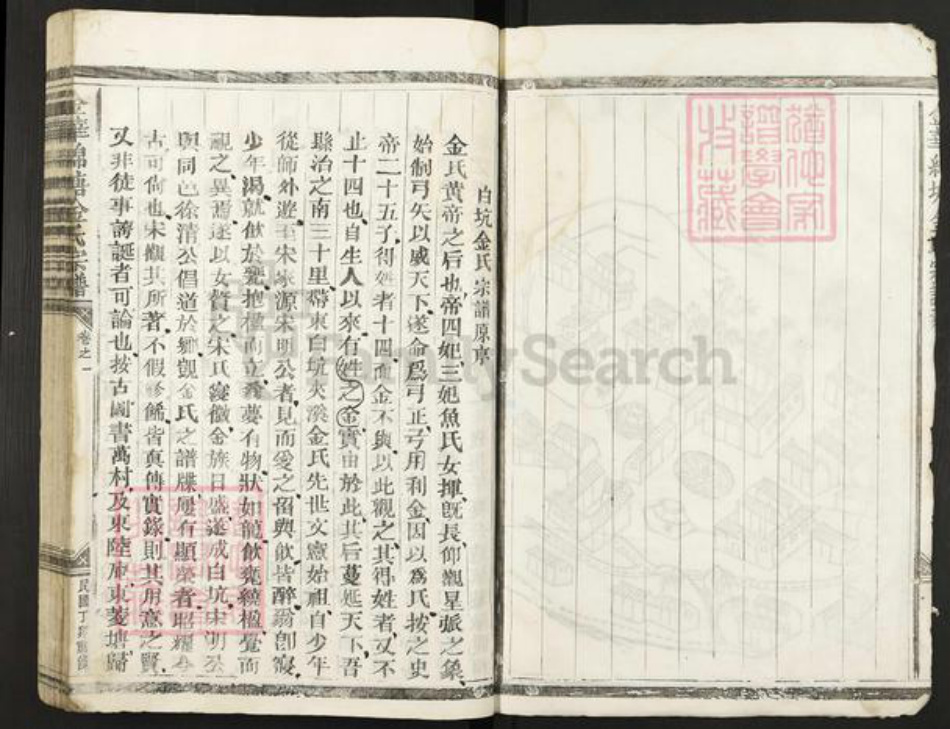 白坑金氏宗譜原序
金氏黃帝之后也帝四妃三妃魚氏女揮旣長仰觀星張之象
始制弓矢以威天下遂命爲弓正弓用利金因以爲氏按之史
帝二十五子得姓者十四而金不與以此觀之其得姓者又不
止十四也自生人以來有姓之金實由於此其后蔓延天下吾
縣治之南三十里帶東白坑夾溪金氏先世文憲始祖自少年
從師外遊至宋家源宋明公者見而愛之留與飲皆醉翁卽寢
少年渴就飲於甕抱楹而立翁夢有物狀如龍飲甕繞楹覺而
視之異焉遂以女贅之宋氏寖微金族日盛遂成白坑宋明公
與同邑徐清公倡道於鄉觀金氏之譜牒屢有顯榮者昭耀
古可尙也宋觀其所著不假修餙皆真傳實錄則其用意之賢
又非徒事誇誕者可論也按古闢書萬村及東陸庫東菱塘歸
金華 金氏宗譜
卷之一
民國丁
FamilySearch
譜學會
收藏